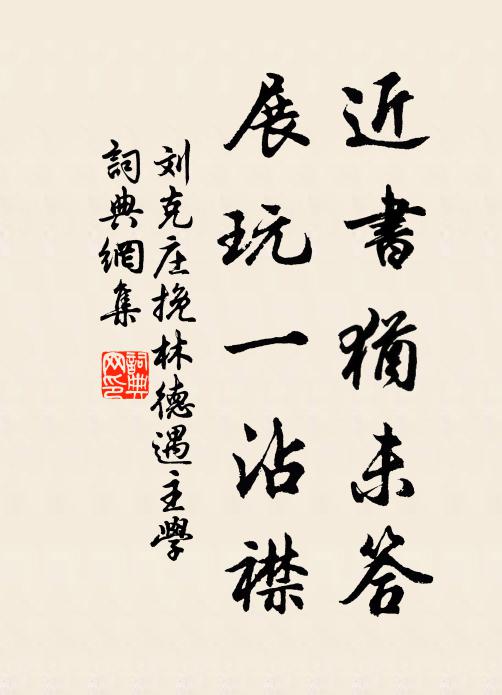 近書猶未答
展玩一沾襟
刘克庄挽林德遇主學
詞典網集
詞典网印